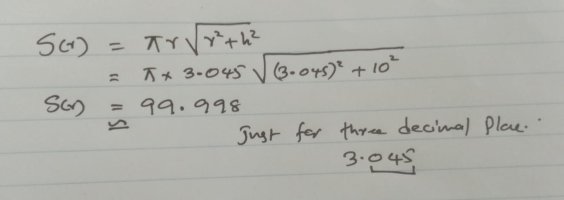 S(r) = πr√r²+h²
= π × 3.045 √(3.045)² + 10²
S(r) ≌ 99.998
Just for three decimal place.
3.045